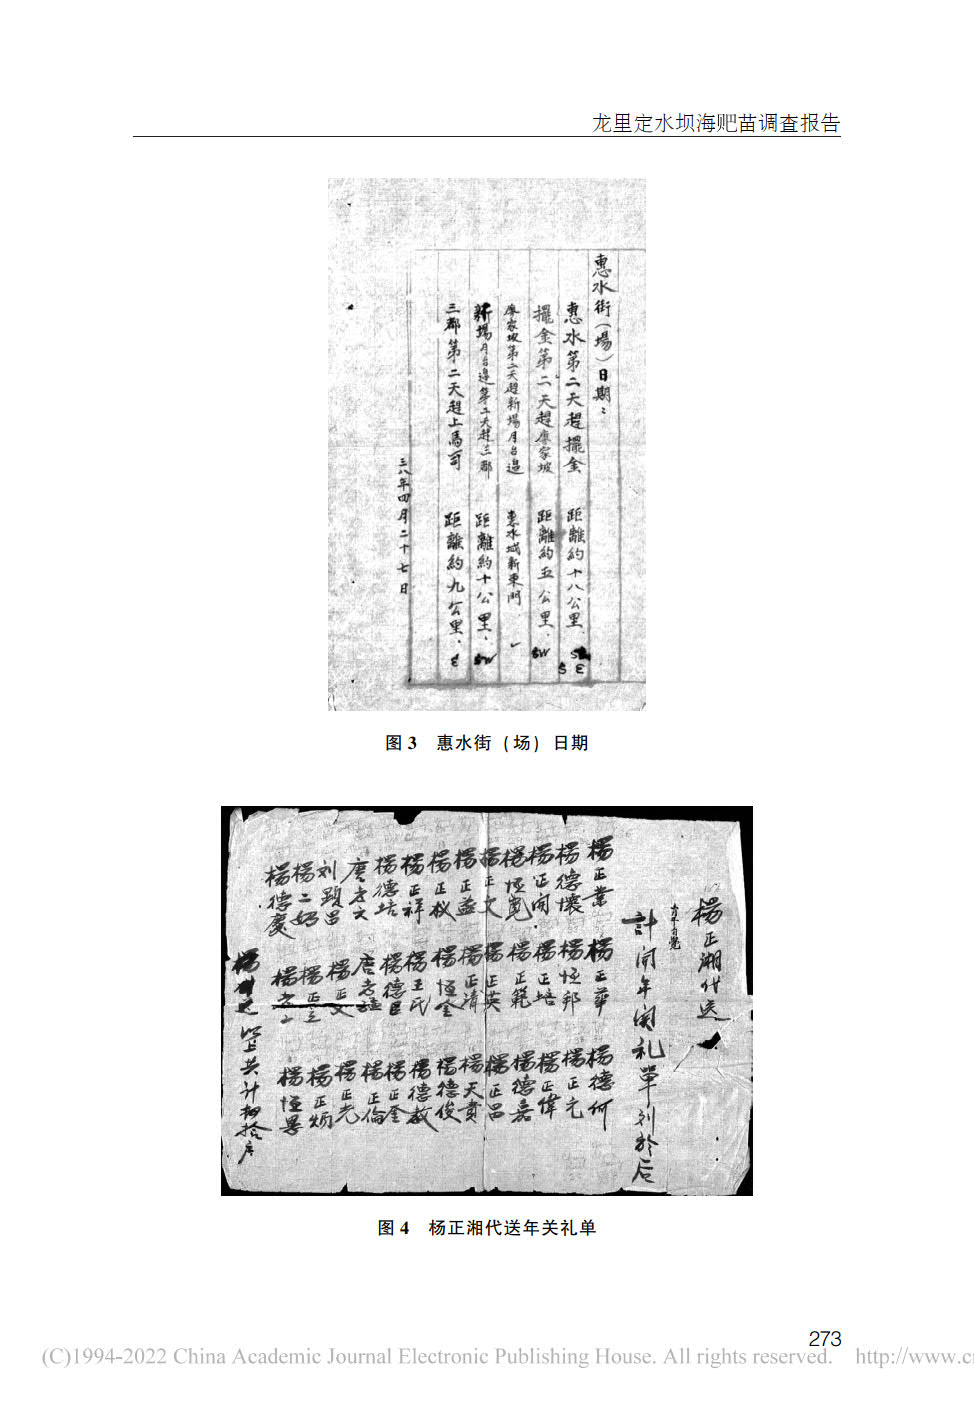 龙里定水坝海𧵳苗调查报告
惠水街（場）日期：
惠水第二天趕擺金 距離約十八公里． SE S E
擺金第二天趕廖家坡 距離約五公里． SW
廖家坡第二天趕新場月台邉 惠水城新東門．
新場月台邉第二天趕三都 距離約十公里． SW
三都第二天趕上馬司 距離約九公里． E
三八年四月二十七日
图 3 惠水街（场）日期
楊正湘代送
計開年関礼單列於后
楊正業 楊正華 楊德何
楊德懷 楊恒邦 楊正元
楊正開 楊正培 楊正偉
楊恒寬 楊正範 楊德嘉
楊正文 楊正英 楊正昌
楊正益 楊正清 楊天貴
楊正權 楊恒金 楊德俊
楊正祥 楊王氏 楊德教
楊德培 楊德臣 楊正奎
唐老大 唐老 楊正倫
刘顕昌 楊正文 楊正光
楊二妈 楊正立 楊正炳
楊德慶 楊老二 楊恒
以上共計 拾户
图 4 杨正湘代送年关礼单
273
(C)1994-2022 China Academic Journal Electronic Publishing House. All rights reserved. http://www.c